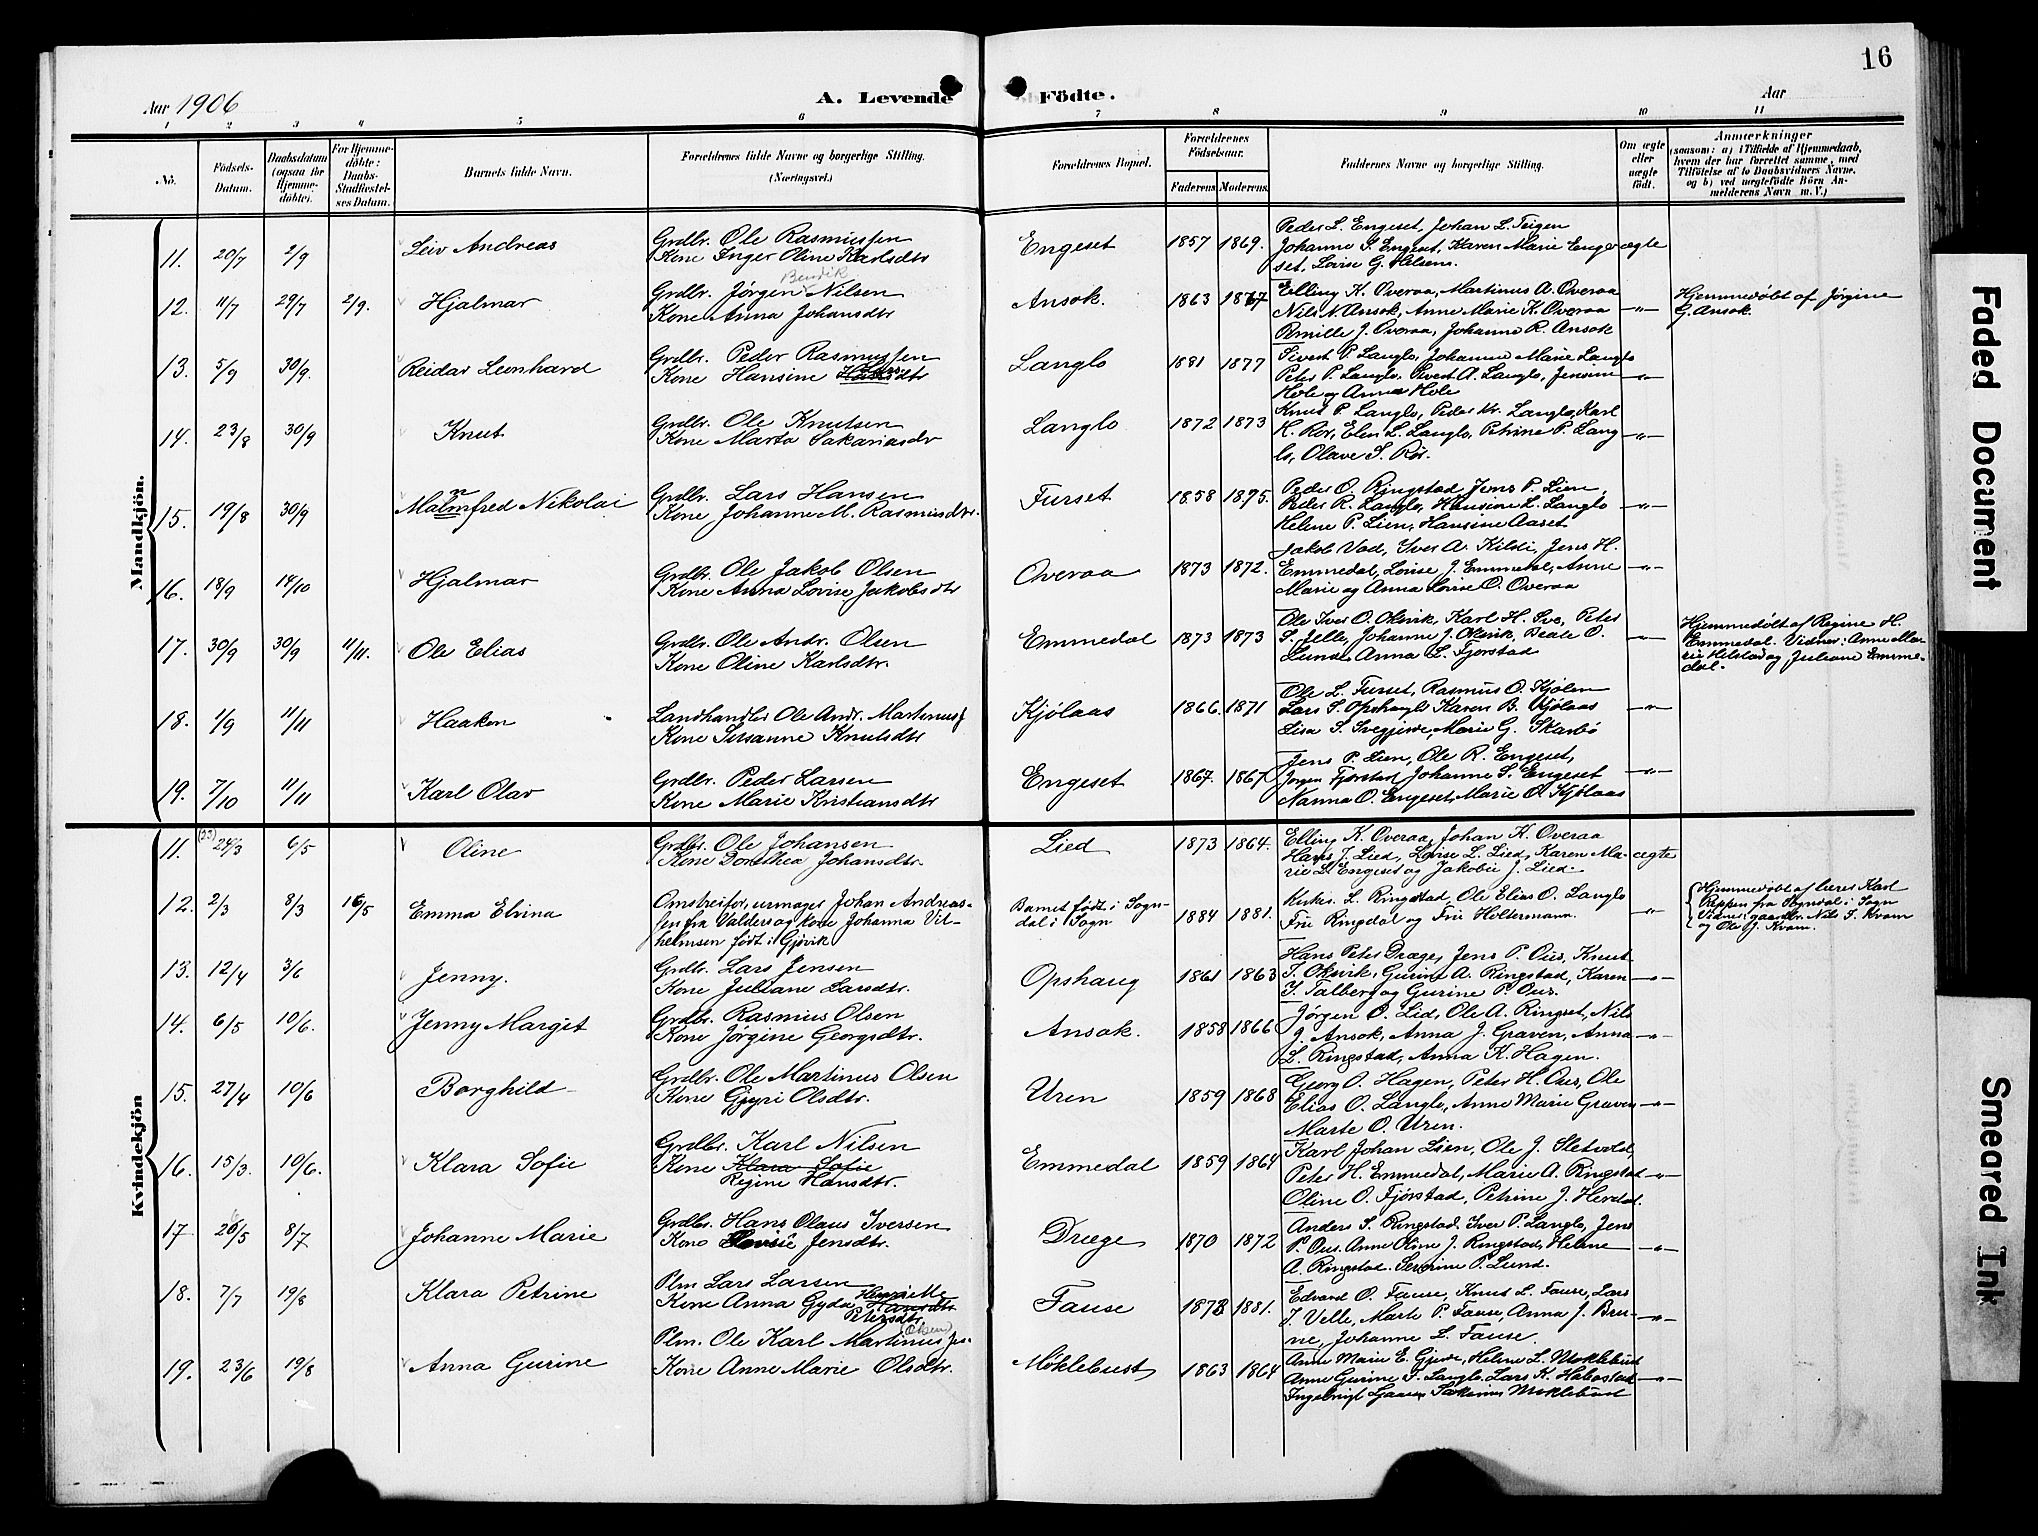 16
Aar 1906
A. Levende Födte.
Aar
1 2 3 4 5 6 7 8 9 10 11
No.
Födsels-Datum.
Daabsdatum (ogsaa for Hjemme-döbte).
For Hjemme-döbte: Daabs-Stadfæstel-ses Datum.
Barnets fulde Navn.
Forældrenes fulde Navne og borgerlige Stilling. (Næringsvei.)
Forældrenes Bopæl.
Forældrenes Födselsaar.
Faderens Moderens.
Faddernes Navne og borgerlige Stilling.
Om ægte eller uægte födt.
Anmærkninger
(saasom: a) i Tilfælde af Hjemmedaab, hvem der har forrettet samme, med Tilföielse af to Daabsvidners Navne, og b) ved uægtefödte Börn An-melderens Navn m. V.)
Mandkjön.
11. 20/7 2/9 Leiv Andreas
Grdbr. Ole Rasmussen
Kone Inger Oline Karlsdtr
Engeset 1857 1869.
Peder L. Engeset, Johan L. Teigen
Johanne S. Engeset, Karen Marie Enge-
set, Lovise G. Helsem.
ægte
12. 11/7 29/7 2/9. Hjalmar
Bendik
Grdbr. Jørgen Nilsen
Kone Anna Johansdtr
Ansok. 1863 1867
Elling K. Overaa, Martinus A. Overaa
Nils N. Ansok, Anne Marie K. Overaa
Pernille J. Overaa, Johanne R. Ansok
-"-
Hjemmedøbt af Jørgine
G. Ansok.
13. 5/9 30/9. Reidar Leonhard
Grdbr. Peder Rasmussen
Kone Hansine Larsdtr
Langlo 1881 1877
Sivert P. Langlo, Johanne Marie Langlo
Peter P. Langlo, Sivert A. Langlo, Jensine
Hole og Anna Hole
-"-
14. 23/8 30/9 Knut
Grdbr. Ole Knutsen
Kone Marta Sakariasdr
Langlo 1872 1873
Knut P. Langlo, Peder Kr. Langlo, Karl
H. Rør, Elen L. Langlo, Petrine P. Lang
lo, Olave S. Rør.
-"-
15. 19/8 30/9 Malmfred Nikolai
Grdbr. Lars Hansen
Kone Johanne M. Rasmusdtr.
Furset 1858 1875.
Peder O. Ringstad, Jens P. Lien,
Peder R. Langlo, Hansine L. Langlo
Helene P. Lien, Hansine Aaset
-"-
16. 18/9 14/10 Hjalmar
Grdbr. Ole Jakob Olsen
Kone Anna Lovise Jakobsdtr
Overaa 1873 1872.
Jakob Vad, Iver A. Kilde, Jens H.
Emmedal, Lovise J. Emmedal, Anne
Marie og Anna Lovise O. Overaa
-"-
17. 30/9 30/9 11/11. Ole Elias
Grdbr. Ole Andr. Olsen
Kone Oline Karlsdtr.
Emmedal 1873 1873
Ole Iver O. Oksvik, Karl H. Sve, Peter
S. Jelle, Johanne J. Oksvik, Beate O.
Lunde, Anna L. Fjørstad
-"-
Hjemmedøbt af Regine H.
Emmedal. Vidner: Anne Ma-
rie Helstad og Juliane Emme-
dal.
18. 1/9 11/11 Haaken
Landhandler Ole Andr. Martinuss
Kone Susanne Knutsdtr
Kjølaas 1866. 1871
Ole L. Furset, Rasmus O. Kjølen
Lars S. Opshaug, Karen B. Kjølaas
Lisa S. Svegjerde, Marie G. Skarbø
-"-
19. 7/10 11/11 Karl Olav
Grdbr. Peder Larsen
Kone Marie Kristiansdtr
Engeset 1867. 1867
Jens P. Lien, Ole R. Engeset,
Jørgen Fjørstad, Johanne S. Engeset
Nanna O. Engeset, Marie O. Kjølaas
-"-
Kvindekjön
11. (23) 24/3 6/5 Oline
Grdbr. Ole Johansen
Kone Dorothea Johansdtr.
Lied 1873 1864.
Elling K. Overaa, Johan K. Overaa
Hans J. Lied, Lovise L. Lied, Karen Ma-
rie L. Engeset og Jakobie J. Lied.
ægte
12. 2/3 8/3 16/5 Emma Elvina
Omstreifer, urmager Johan Andreas-
sen fra Valders og kone Johanna Vil-
helmsen født i Gjøvik
Barnet født i Sogn-
dal i Sogn
1884 1881.
L. Ringstad, Ole Elias O. Langlo
Fru Ringdal og Fru Holtermann.
-"-
Hjemmedøbt af lærer Karl
Reppen fra Sogndal i Sogn
Vidner: gaardbr. Nils T. Kvam
og Ole J. Kvam.
13. 12/4 3/6 Jenny.
Grdbr. Lars Jensen
Kone Juliane Larsdtr.
Opshaug 1861 1863
Hans Peter Dræge, Jens P. Ous, Knut
T. Oksvik, Gurine A. Ringstad, Karen
I. Talberg og Gurine P. Ous.
-"-
14. 6/5 10/6. Jenny Margit
Grdbr. Rasmus Olsen
Kone Jørgine Georgsdtr.
Ansok. 1858 1866
Jørgen O. Lid, Ole A. Ringset, Nils
J. Ansok, Anna J. Graven, Anna
L. Ringstad, Anna K. Hagen.
-"-
15. 27/4 10/6 Borghild
Grdbr. Ole Martinus Olsen
Kone Gyri Olsdtr.
Uren 1859 1868
Georg O. Hagen, Peter H. Ous, Ole
Elias O. Langlo, Anne Marie Graven
Marte O. Uren.
-"-
16. 15/3. 10/6. Klara Sofie
Grdbr. Karl Nilsen
Kone Klara Sofie
Regine Hansdtr.
Emmedal 1859 1864
Karl Johan Lien, Ole J. Sletvold,
Peter H. Emmedal, Marie A. Ringstad
Oline O. Fjørstad, Petrine J. Herdal.
-"-
17. 26/5 8/7 Johanne Marie
Grdbr. Hans Olaus Iversen
Kone Lovise Jensdtr.
Dræge 1870 1872
Anders S. Ringstad, Iver P. Langlo, Jens
P. Ous, Anne Oline J. Ringstad, Helene
A. Ringstad. Severine P. Lund.
-"-
18. 7/7 19/8 Klara Petrine
Plm Lars Larsen
Henriette
Kone Anna Gyda Hansdtr
Petersdtr.
Fause 1878 1881.
Edvard O. Fause, Knut L. Fause, Lars
J. Velle, Marte P. Fause, Anna J. Bru-
ne, Johanne L. Fause.
-"-
19. 23/6 19/8 Anna Gurine
(Olsen)
Plm. Ole Karl Martinus
Kone Anne Marie Olsdtr.
Møklebust 1863 1864
Anne Marie E. Gjerde, Helene L. Møklebust
Anne Gurine S. Langlo, Lars K. Habostad
Ingebrigt Gaasen, Sakarias Møklebust
-"-
Faded Document
Smeared Ink